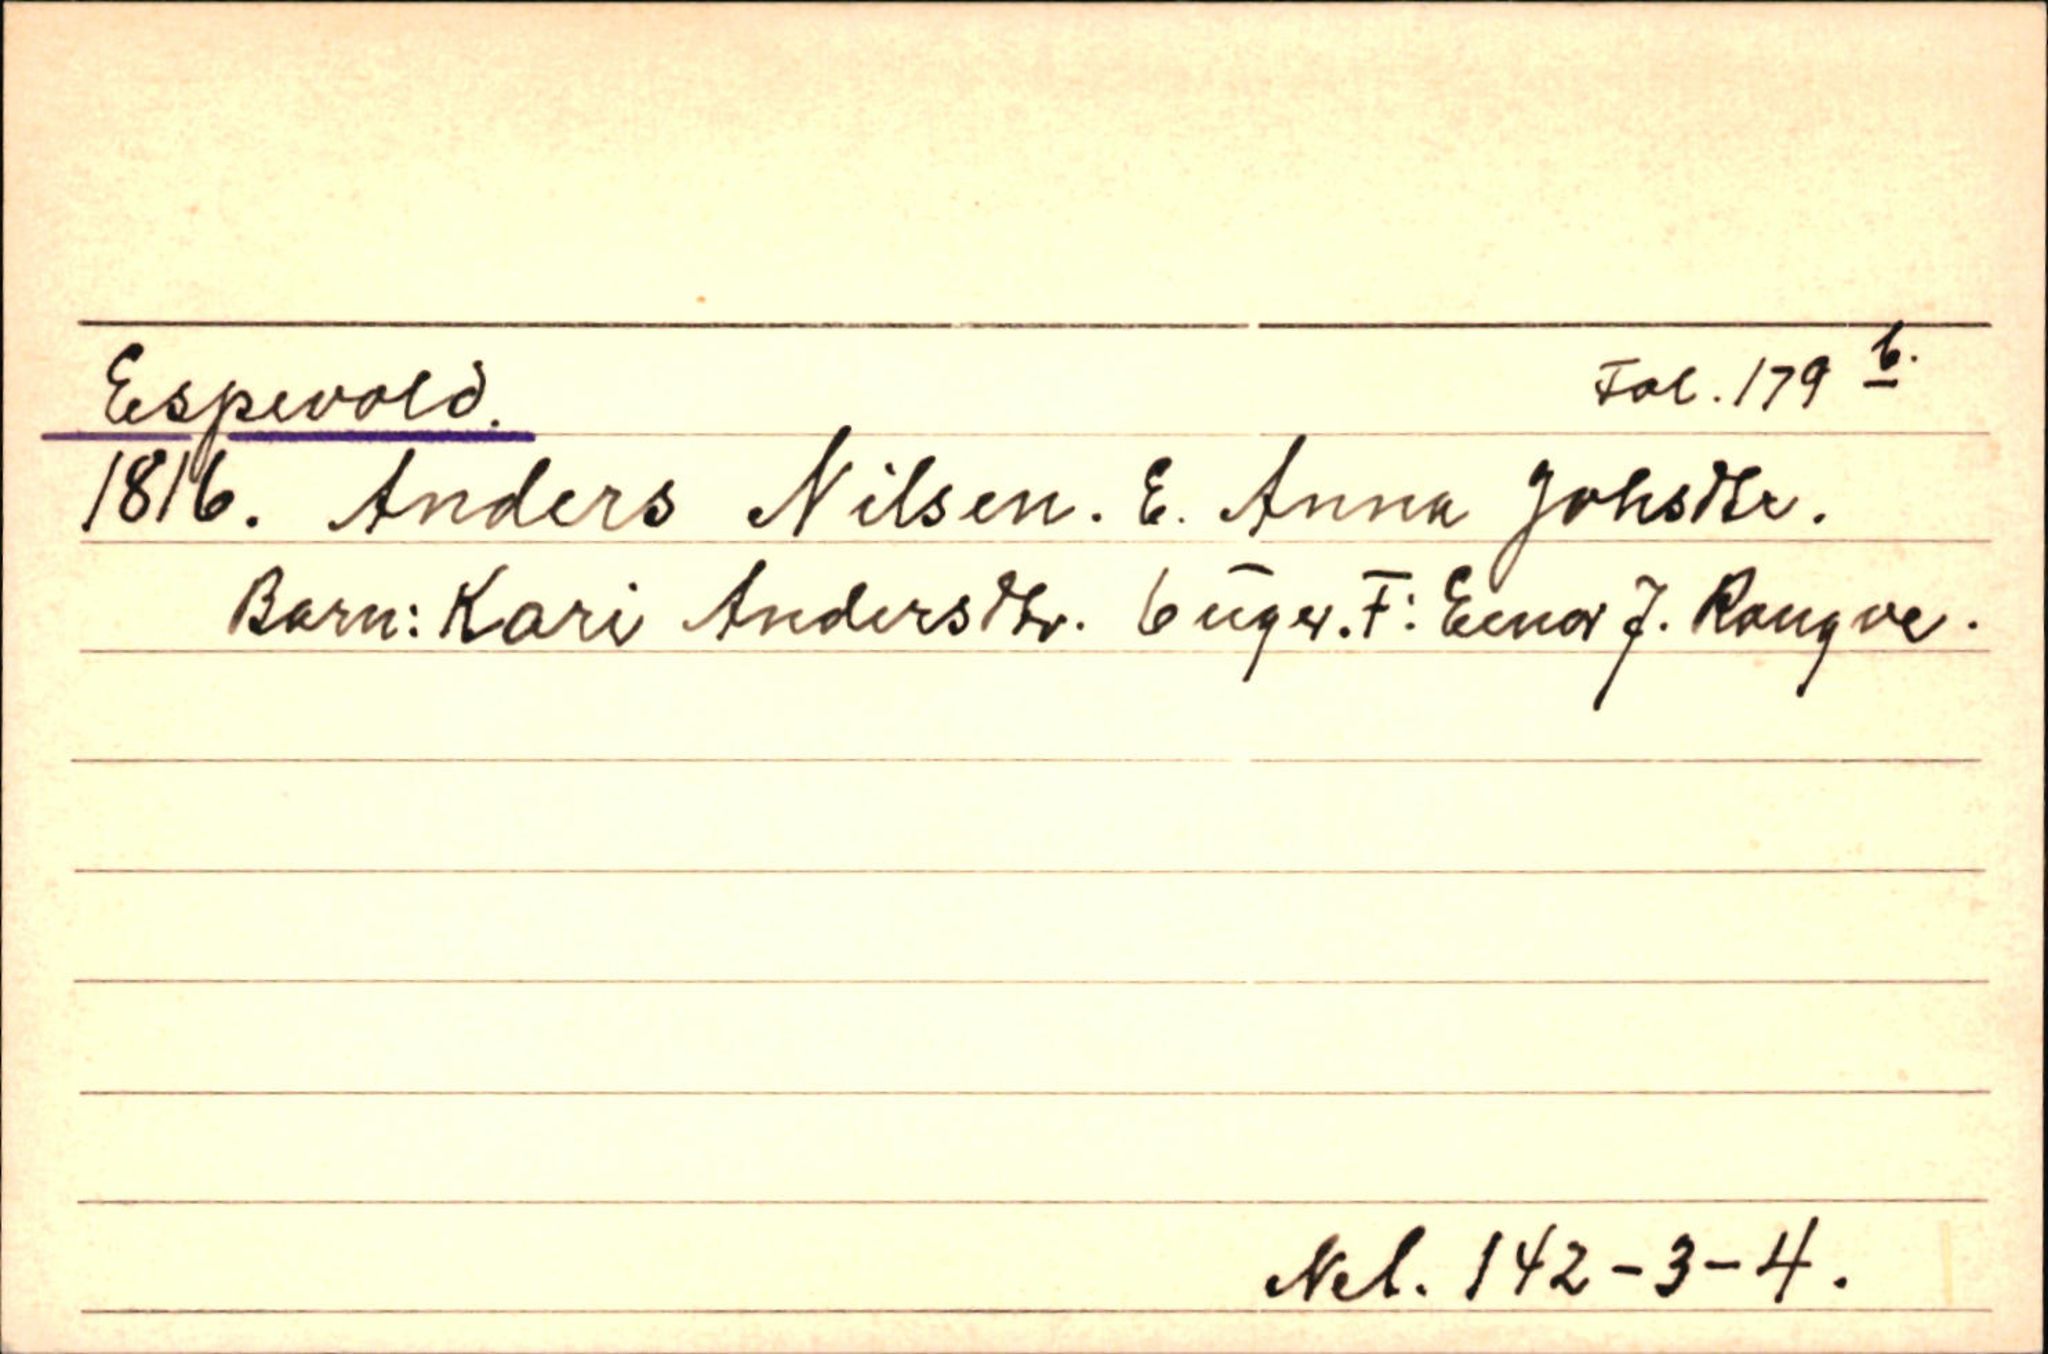 Espevold. Fol. 179 b.
1816. Anders Nilsen. E. Anna Johsdtr.
Barn: Kari Andersdtr. 6 uger. F: Einar J. Raugve.
Nel. 142-3-4.